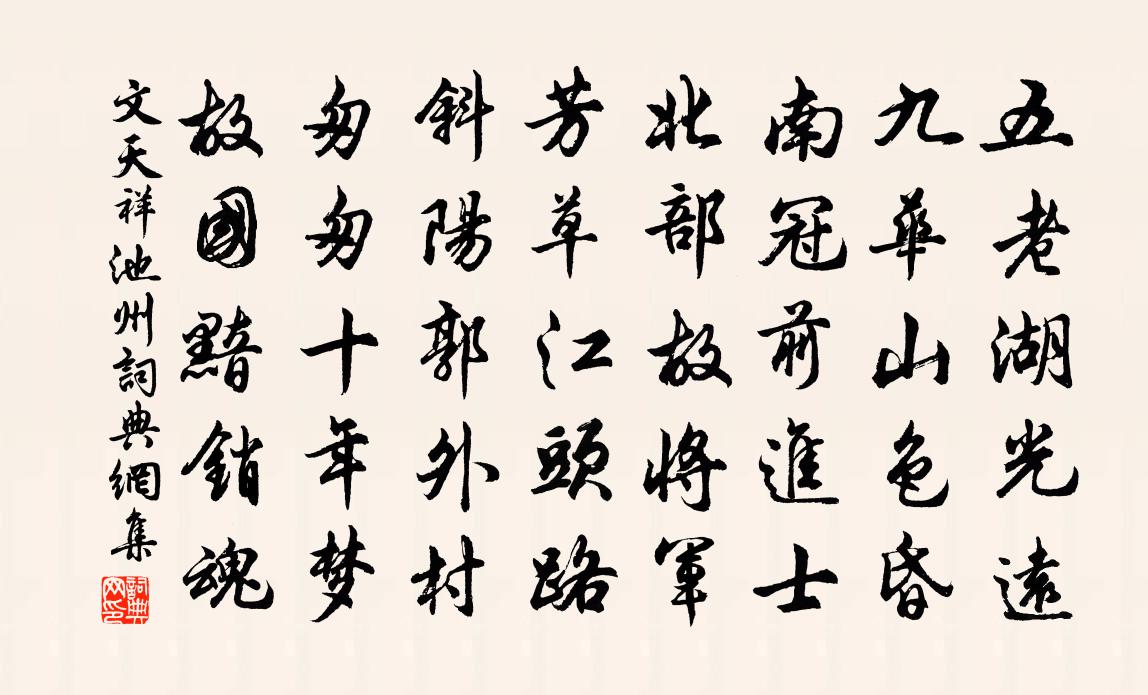 五老湖光遠
九華山色昏
南冠前進士
北部故將軍
芳草江頭路
斜陽郭外村
匆匆十年梦
故國黯銷魂
文天祥池州詞典網集
詞典网印